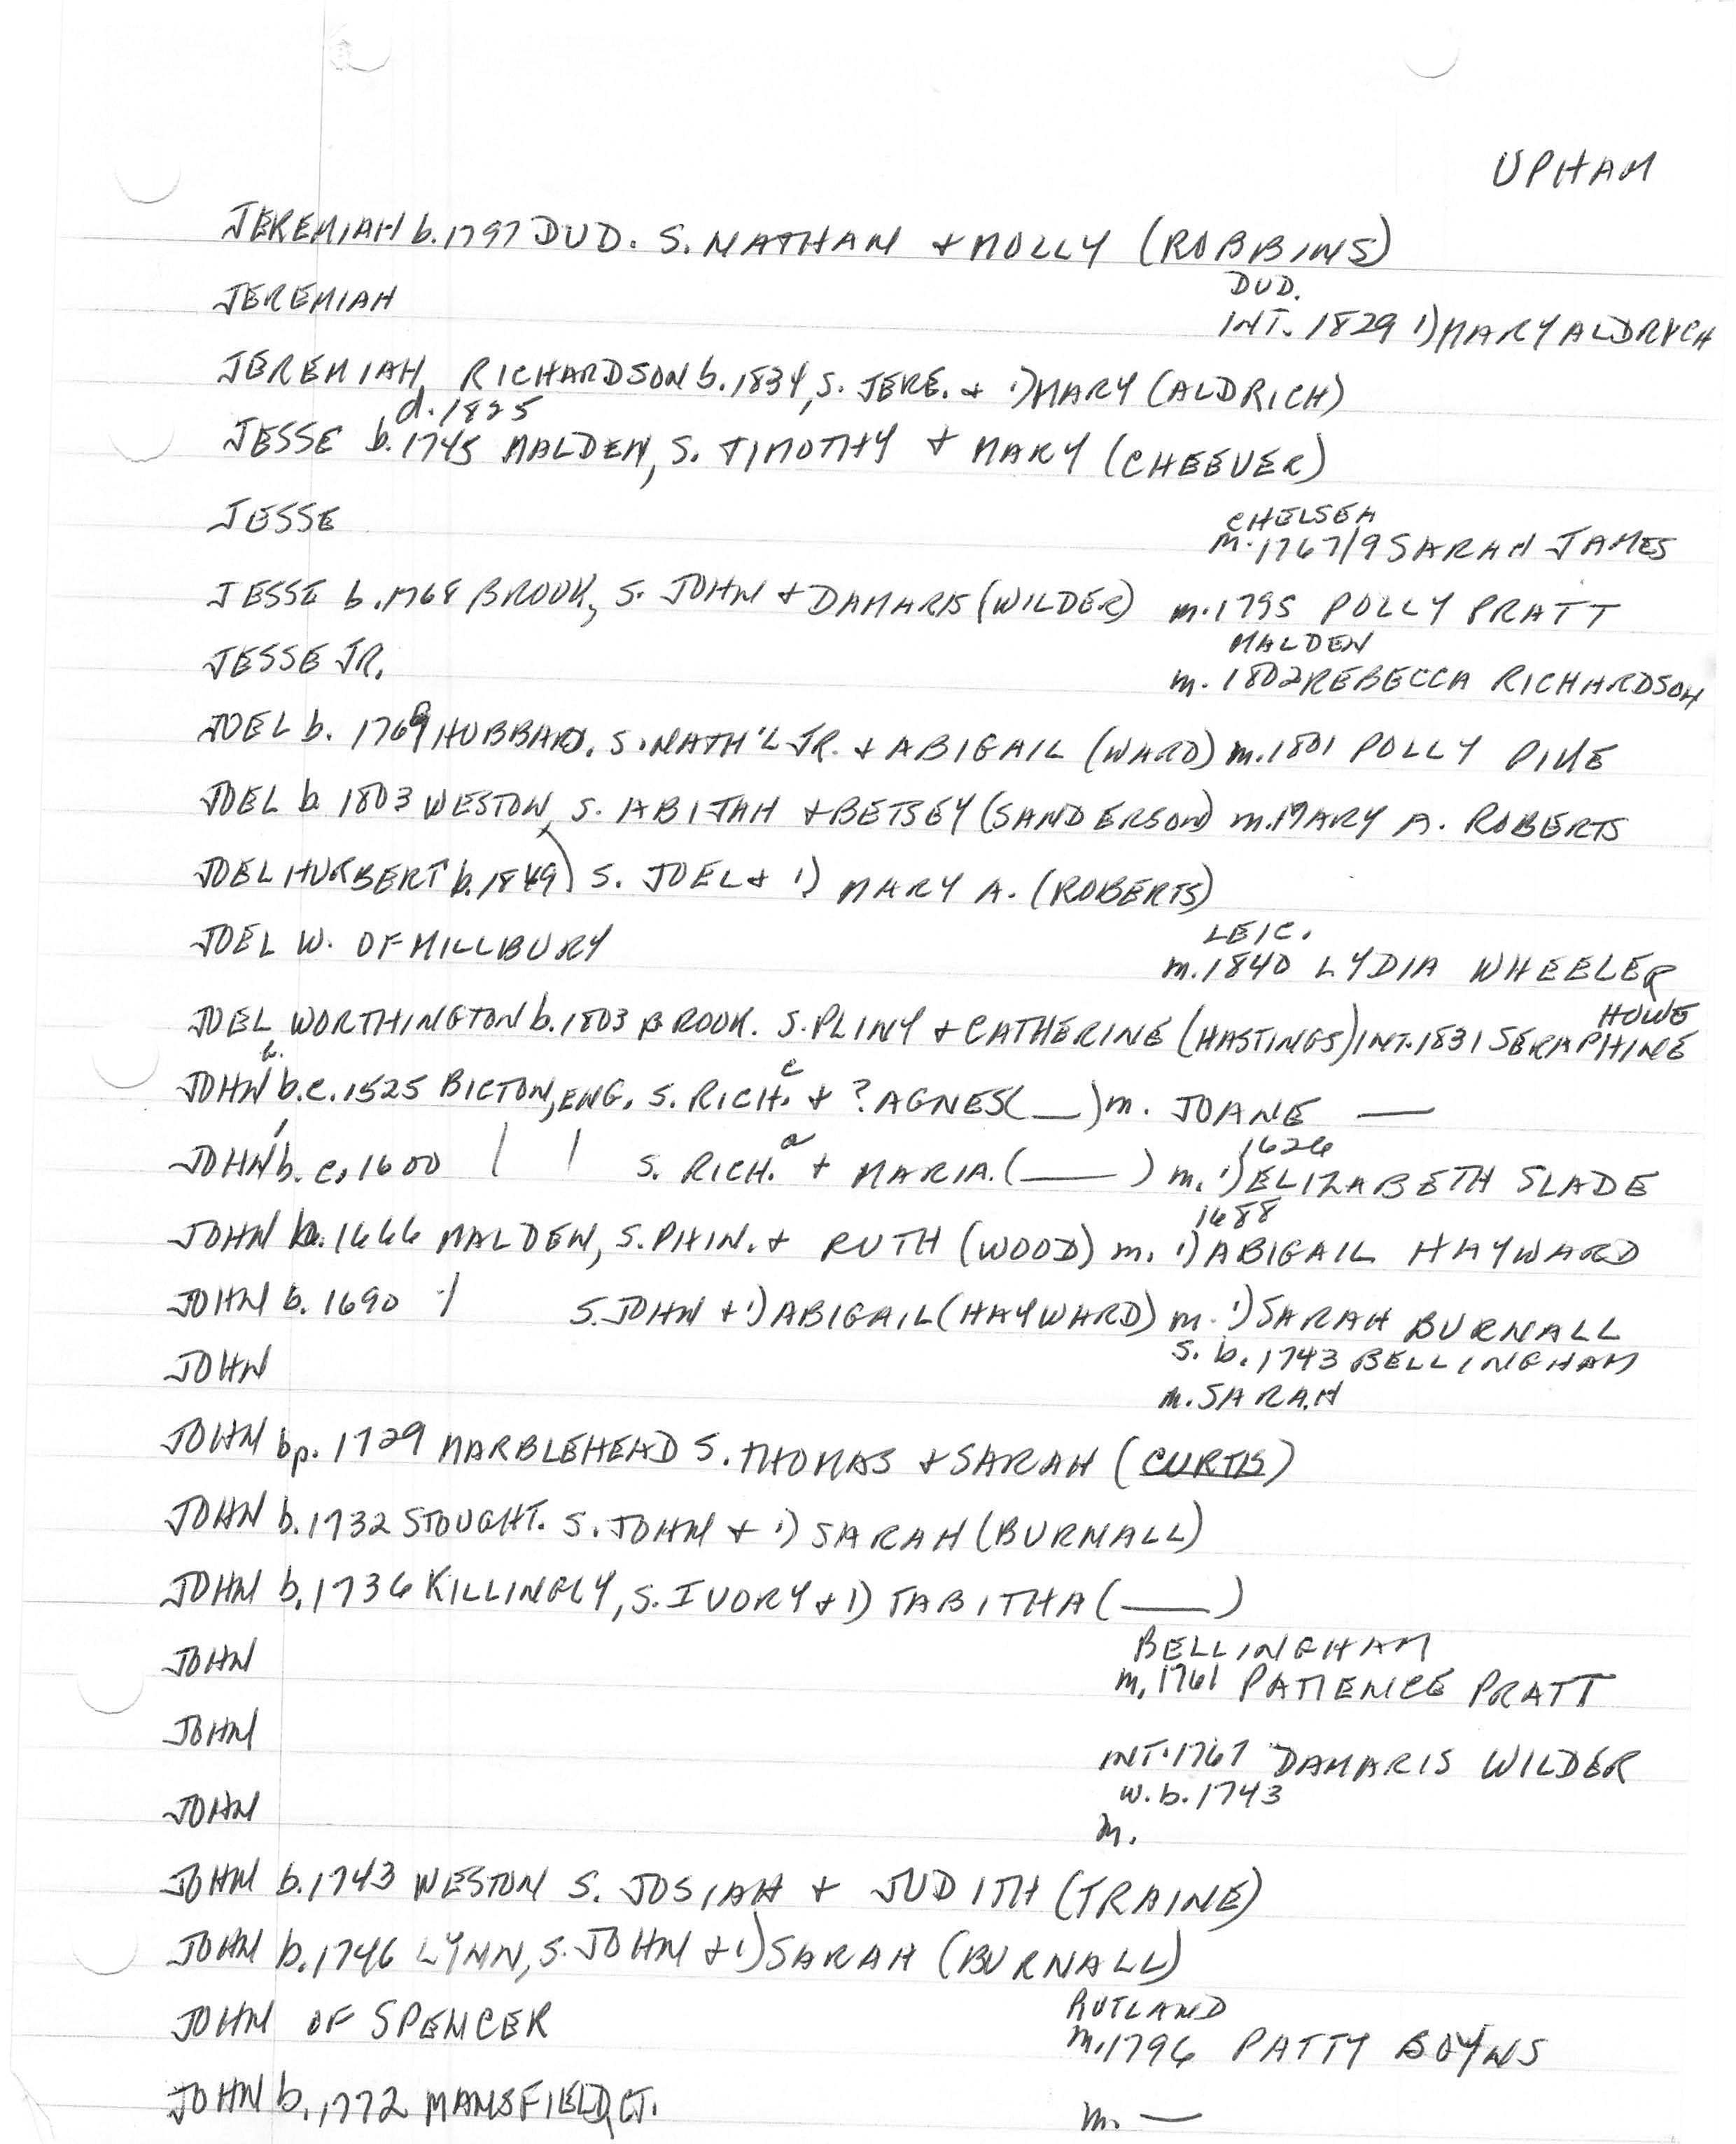 UPHAM
JEREMIAH b. 1797 DUD. S. NATHAN + MOLLY (ROBBINS)
DUD.
JEREMIAH INT. 1829 1) MARY ALDRYCH
JEREMIAH, RICHARDSON b. 1834, S. JERE. + 1) MARY (ALDRICH)
d. 1825
JESSE b. 1745 MALDEN, S. TIMOTHY + MARY (CHEEVER)
CHELSEA
JESSE m. 1767/9 SARAH JAMES
JESSE b. 1768 BROOK, S. JOHN + DAMARIS (WILDER) m. 1795 POLLY PRATT
MALDEN
JESSE JR. m. 1802 REBECCA RICHARDSON
JOEL b. 1769 HUBBARD. S. NATH'L JR. + ABIGAIL (WARD) m. 1801 POLLY PIKE
JOEL b. 1803 WESTON, S. ABIJAH + BETSEY (SANDERSON) m. MARY A. ROBERTS
JOEL HURBERT b. 1849) S. JOEL + 1) MARY A. (ROBERTS)
LEIC.
JOEL W. OF MILLBURY m. 1840 LYDIA WHEELER
HOWE
JOEL WORTHINGTON b. 1803 BROOK. S. PLINY + CATHERINE (HASTINGS) INT. 1831 SERAPHINE
JOHN b. c. 1525 BICTON, ENG. S. RICH. c + ? AGNES (__) m. JOANE —
1626
JOHN b. c. 1600 | | S. RICH. a + MARIA. (___) m. 1) ELIZABETH SLADE
1688
JOHN b. 1666 MALDEN, S. PHIN. + RUTH (WOOD) m. 1) ABIGAIL HAYWARD
JOHN b. 1690 | S. JOHN + 1) ABIGAIL (HAYWARD) m. 1) SARAH BURNALL
S. b. 1743 BELLINGHAM
JOHN m. SARAH
JOHN bp. 1729 MARBLEHEAD S. THOMAS + SARAH (CURTIS)
JOHN b. 1732 STOUGHT. S. JOHN + 1) SARAH (BURNALL)
JOHN b. 1736 KILLINGLY, S. IVORY + 1) TABITHA (___)
BELLINGHAM
JOHN m. 1761 PATIENCE PRATT
JOHN INT. 1767 DAMARIS WILDER
w. b. 1743
JOHN m.
JOHN b. 1743 WESTON S. JOSIAH + JUDITH (TRAINE)
JOHN b. 1746 LYNN, S. JOHN + 1) SARAH (BURNALL)
RUTLAND
JOHN OF SPENCER m. 1796 PATTY BOYNS
JOHN b. 1772 MANSFIELD, CT. m. —